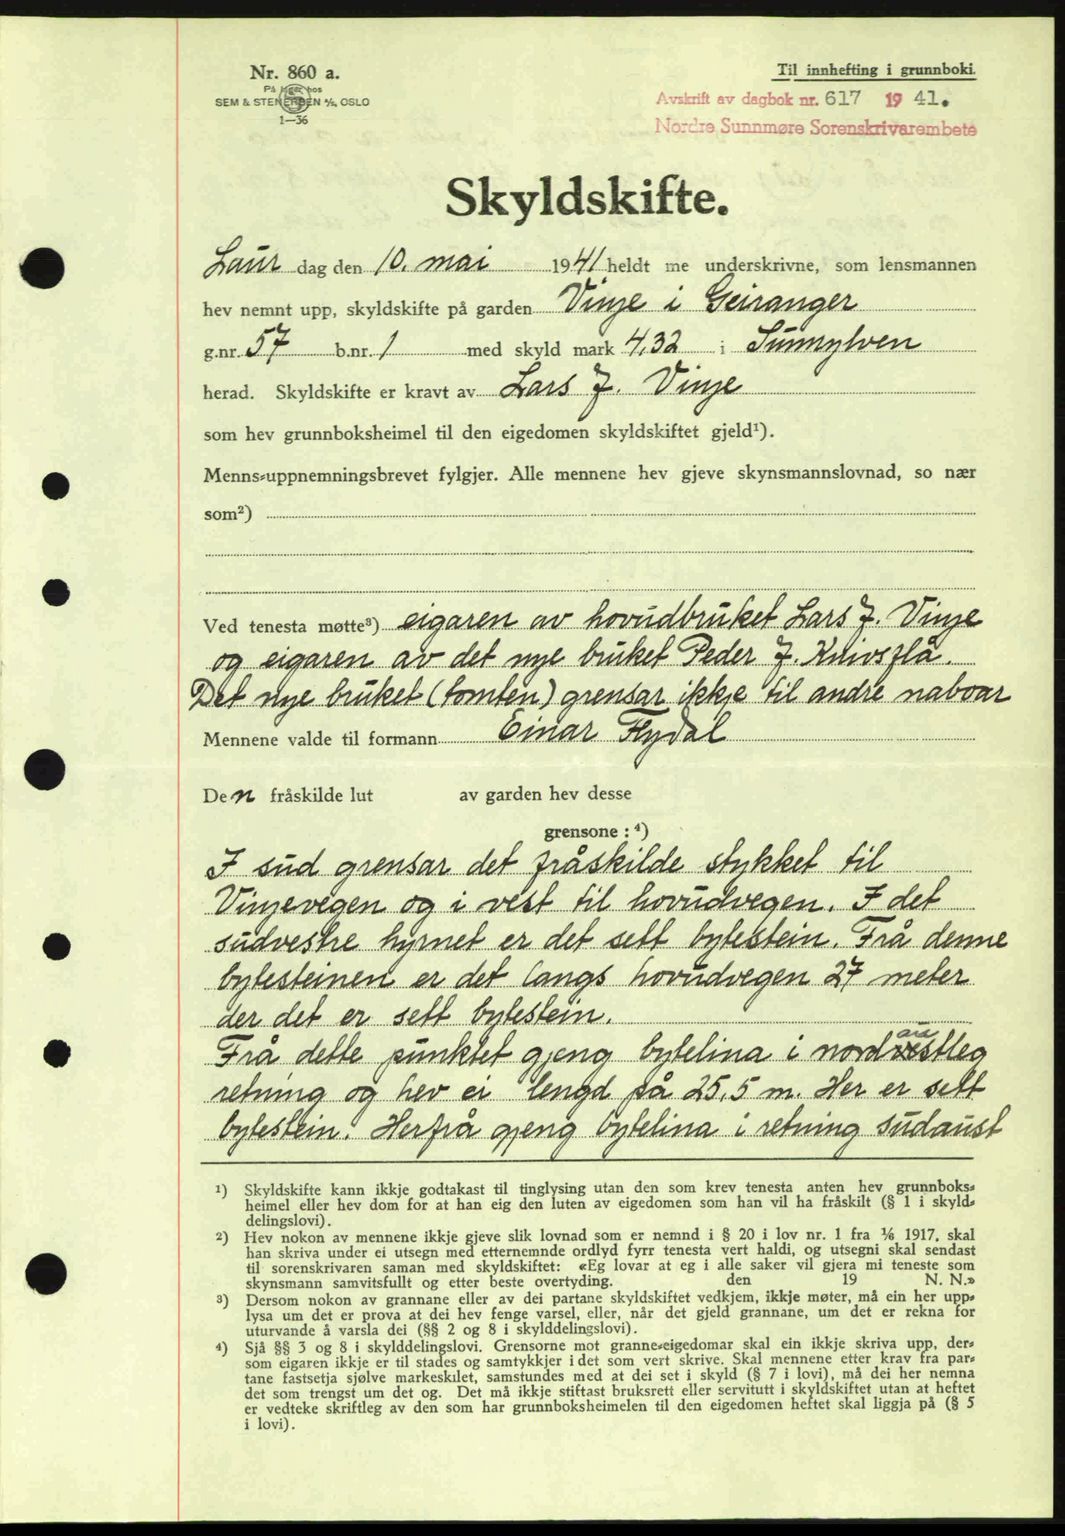 Nr. 860 a.
På lager hos
SEM & STENERSEN A/S, OSLO
1—36
Til innhefting i grunnboki.
Avskrift av dagbok nr. 617 1941.
Nordre Sunnmøre Sorenskrivarembete
Skyldskifte.
Laur dag den 10. mai 1941 heldt me underskrivne, som lensmannen
hev nemnt upp, skyldskifte på garden Vinje i Geiranger
g.nr. 57 b.nr. 1 med skyld mark 4,32 i Sunnylven
herad. Skyldskifte er kravt av Lars J. Vinje
som hev grunnboksheimel til den eigedomen skyldskiftet gjeld¹).
Menns-uppnemningsbrevet fylgjer. Alle mennene hev gjeve skynsmannslovnad, so nær
som²)
Ved tenesta møtte³) eigaren av hovudbruket Lars J. Vinje
og eigaren av det nye bruket Peder J. Knivsflå.
Det nye bruket (tomten) grensar ikkje til andre naboar
Mennene valde til formann Einar Flydal
Den fråskilde lut av garden hev desse
grensone : ⁴)
I sud grensar det fråskilde stykket til
Vinjevegen og i vest til hovudvegen. I det
sudvestre hyrnet er det sett bytestein. Frå denne
bytesteinen er det langs hovudvegen 27 meter
der det er sett bytestein.
Frå dette punktet gjeng bytelina i nordaustleg
retning og hev ei lengd på 25,5 m. Her er sett
bytestein. Herfrå gjeng bytelina i retning sudaust
¹) Skyldskifte kann ikkje godtakast til tinglysing utan den som krev tenesta anten hev grunnboks-
heimel eller hev dom for at han eig den luten av eigedomen som han vil ha fråskilt (§ 1 i skyld-
delingslovi).
²) Hev nokon av mennene ikkje gjeve slik lovnad som er nemnd i § 20 i lov nr. 1 fra 1/6 1917, skal
han skriva under ei utsegn med etternemnde ordlyd fyrr tenesta vert haldi, og utsegni skal sendast
til sorenskrivaren saman med skyldskiftet: «Eg lovar at eg i alle saker vil gjera mi teneste som
skynsmann samvitsfullt og etter beste overtyding. den 19 N. N.»
³) Dersom nokon av grannane eller av dei partane skyldskiftet vedkjem, ikkje møter, må ein her upp-
lysa um det er prova at dei hev fenge varsel, eller, når det gjeld grannane, um det er rekna for
uturvande å varsla dei (§§ 2 og 8 i skylddelingslovi).
⁴) Sjå §§ 3 og 8 i skylddelingslovi. Grensorne mot granne-eigedomar skal ein ikkje skriva upp, der-
som eigaren ikkje er til stades og samtykkjer i det som vert skrive. Skal mennene etter krav fra par-
tane fastsetja sjølve markeskilet, samstundes med at dei set i skyld (§ 7 i lovi), må dei her nemna
det som trengst um det og. Det må ikkje stiftast bruksrett eller servitutt i skyldskiftet utan at heftet
er vedteke skriftleg av den som har grunnboksheimelen til den eigedomen heftet skal liggja på (§ 5
i lovi).